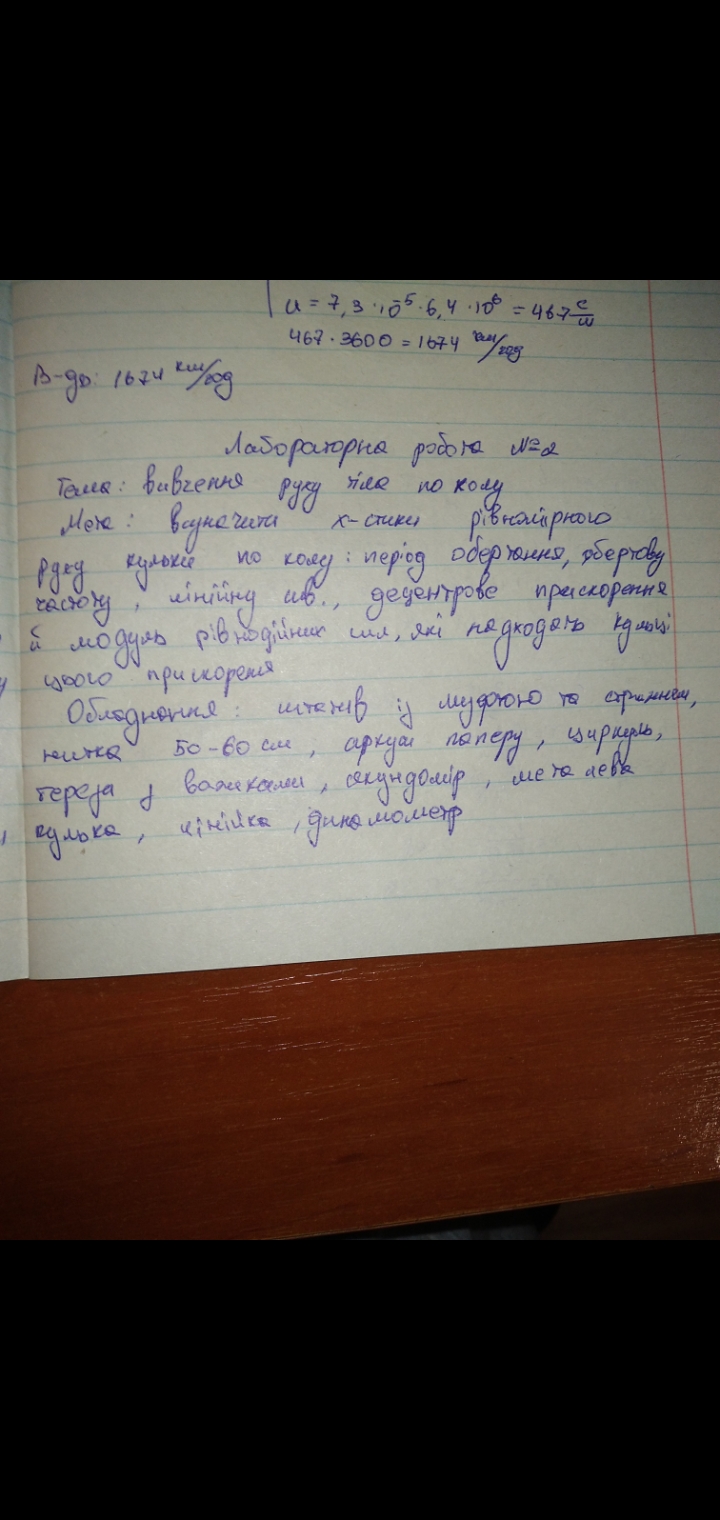 u = 7,3 · 10⁻⁵ · 6,4 · 10⁶ = 467 с/м
467 · 3600 = 1674 км/год
В-дь: 1674 км/год
Лабораторна робота №2
Тема: вивчення руху тіла по колу
Мета: визначити х-стики рівномірного
руху кульки по колу: період обертання, обертову
частоту, лінійну шв., децентрове прискорення
й модуль рівнодійних сил, які надходать кульці
цього прискореня
Обладнання: штатив із муфтою та стрижнем,
нитка 50-60 см, аркуш паперу, циркуль,
тереза з важками, секундомір, металева
кулька, лінійка, динамометр